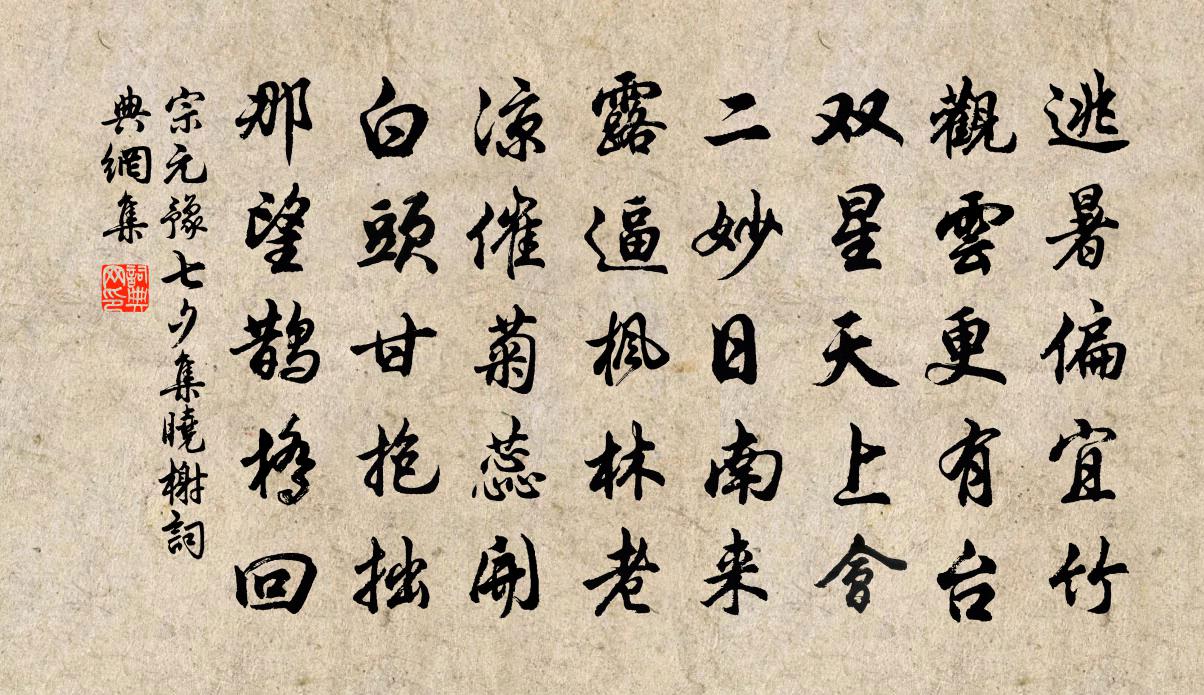 逃暑偏宜竹
觀雲更有台
双星天上會
二妙日南来
露逼楓林老
凉催菊蕊開
白頭甘抱拙
那望鹊橋回
宗元豫七夕集曉榭詞
典網集
詞典
网印